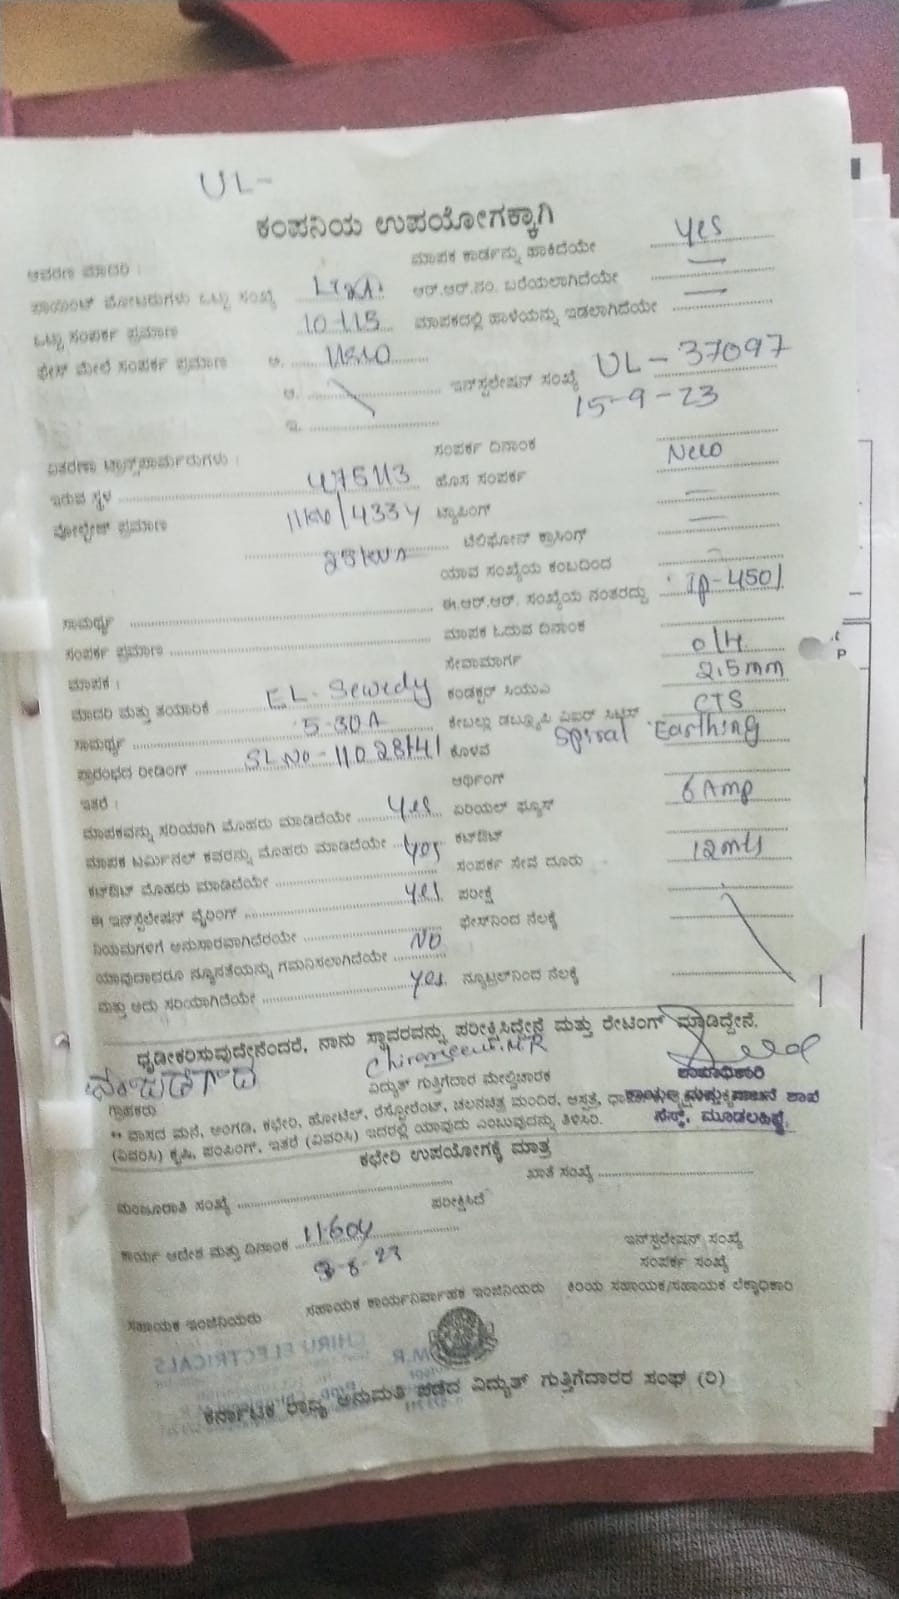 UL-
ಕಂಪನಿಯ ಉಪಯೋಗಕ್ಕಾಗಿ
ಆವರಣ ಮಾದರಿ :
ಮಾಪಕ ಕಾರ್ಡನ್ನು ಹಾಕಿದೆಯೇ Yes
ಪಾಯಿಂಟ್ ಮೋಟರುಗಳು ಒಟ್ಟು ಸಂಖ್ಯೆ
ಆರ್.ಆರ್.ನಂ. ಬರೆಯಲಾಗಿದೆಯೇ —
ಒಟ್ಟು ಸಂಪರ್ಕ ಪ್ರಮಾಣ
ಮಾಪಕದಲ್ಲಿ ಹಾಳೆಯನ್ನು ಇಡಲಾಗಿದೆಯೇ —
ಫೇಸ್ ಮೇಲೆ ಸಂಪರ್ಕ ಪ್ರಮಾಣ ಅ.
ಆ.
ಇನ್‌ಸ್ಟಲೇಷನ್ ಸಂಖ್ಯೆ UL-37097
15-9-23
ಇ.
ವಿತರಣಾ ಟ್ರಾನ್ಸ್‌ಫಾರ್ಮರುಗಳು :
ಸಂಪರ್ಕ ದಿನಾಂಕ
ಇರುವ ಸ್ಥಳ 475113
ಹೊಸ ಸಂಪರ್ಕ New
ವೋಲ್ಟೇಜ್ ಪ್ರಮಾಣ
ಟ್ಯಾಪಿಂಗ್ —
25 KVA
ಟೆಲಿಫೋನ್ ಕ್ರಾಸಿಂಗ್ —
ಯಾವ ಸಂಖ್ಯೆಯ ಕಂಬದಿಂದ
ಸಾಮರ್ಥ್ಯ
ಈ.ಆರ್.ಆರ್. ಸಂಖ್ಯೆಯ ನಂತರದ್ದು
ಸಂಪರ್ಕ ಪ್ರಮಾಣ
ಮಾಪಕ ಓದುವ ದಿನಾಂಕ
ಮಾಪಕ :
ಸೇವಾಮಾರ್ಗ o/H
ಮಾದರಿ ಮತ್ತು ತಯಾರಿಕೆ EL-Sewedy
ಕಂಡಕ್ಟರ್ ಸಿಯುವಿ 2.5mm
ಸಾಮರ್ಥ್ಯ 5-30A
ಕೇಬಲ್ಲು ಡಬ್ಲ್ಯೂಪಿ ಏಐಆರ್ ಸಿಟಿಎಸ್ CTS
ಪ್ರಾರಂಭದ ರೀಡಿಂಗ್ SL No-11028141
ಕೊಳವೆ Spiral Earthing
ಆರ್ಥಿಂಗ್
ಇತರೆ :
ಮಾಪಕವನ್ನು ಸರಿಯಾಗಿ ಮೊಹರು ಮಾಡಿದೆಯೇ Yes
ಏರಿಯಲ್ ಫ್ಯೂಸ್ 6 Amp
ಮಾಪಕ ಟರ್ಮಿನಲ್ ಕವರನ್ನು ಮೊಹರು ಮಾಡಿದೆಯೇ Yes
ಕಟ್‌ಔಟ್
ಕಟ್‌ಔಟ್ ಮೊಹರು ಮಾಡಿದೆಯೇ
ಸಂಪರ್ಕ ಸೇವೆ ದೂರು 12mts
ಈ ಇನ್‌ಸ್ಟಲೇಷನ್ ವೈರಿಂಗ್ Yes
ಪರೀಕ್ಷೆ
ನಿಯಮಗಳಿಗೆ ಅನುಸಾರವಾಗಿದೆರೆಯೇ
ಫೇಸ್‌ನಿಂದ ನೆಲಕ್ಕೆ
ಯಾವುದಾದರೂ ನ್ಯೂನತೆಯನ್ನು ಗಮನಿಸಲಾಗಿದೆಯೇ No
ಮತ್ತು ಅದು ಸರಿಯಾಗಿದೆಯೇ Yes
ನ್ಯೂಟ್ರಲ್‌ನಿಂದ ನೆಲಕ್ಕೆ
ಧೃಡೀಕರಿಸುವುದೇನೆಂದರೆ, ನಾನು ಸ್ಥಾವರವನ್ನು ಪರೀಕ್ಷಿಸಿದ್ದೇನೆ ಮತ್ತು ರೇಟಿಂಗ್ ಮಾಡಿದ್ದೇನೆ.
Chiranjeevi.M.R
ಗ್ರಾಹಕರು
ವಿದ್ಯುತ್ ಗುತ್ತಿಗೆದಾರ ಮೇಲ್ವಿಚಾರಕ
ಶಾಖಾಧಿಕಾರಿ
** ವಾಸದ ಮನೆ, ಅಂಗಡಿ, ಕಛೇರಿ, ಹೋಟೆಲ್, ರೆಸ್ಟೋರೆಂಟ್, ಚಲನಚಿತ್ರ ಮಂದಿರ, ಆಸ್ಪತ್ರೆ,
ಕಾರ್ಯ ಮತ್ತು ಪಾಲನೆ ಶಾಖೆ
(ವಿವರಿಸಿ) ಕೃಷಿ, ಪಂಪಿಂಗ್, ಇತರೆ (ವಿವರಿಸಿ) ಇದರಲ್ಲಿ ಯಾವುದು ಎಂಬುವುದನ್ನು ತಿಳಿಸಿರಿ.
ಸೆಸ್ಕ್, ಮೂಡಲಹಿಪ್ಪೆ
ಕಛೇರಿ ಉಪಯೋಗಕ್ಕೆ ಮಾತ್ರ
ಮಂಜೂರಾತಿ ಸಂಖ್ಯೆ
ಖಾತೆ ಸಂಖ್ಯೆ
ಪರೀಕ್ಷಿಸಿದೆ
ಕಾರ್ಯ ಆದೇಶ ಮತ್ತು ದಿನಾಂಕ 11604
ಇನ್‌ಸ್ಟಲೇಷನ್ ಸಂಖ್ಯೆ
ಸಂಪರ್ಕ ಸಂಖ್ಯೆ
ಸಹಾಯಕ ಇಂಜಿನಿಯರು
ಸಹಾಯಕ ಕಾರ್ಯನಿರ್ವಾಹಕ ಇಂಜಿನಿಯರು
ಕಿರಿಯ ಸಹಾಯಕ/ಸಹಾಯಕ ಲೆಕ್ಕಾಧಿಕಾರಿ
CHIRU ELECTRICALS
ಕರ್ನಾಟಕ ರಾಜ್ಯ ಅನುಮತಿ ಪಡೆದ ವಿದ್ಯುತ್ ಗುತ್ತಿಗೆದಾರರ ಸಂಘ (ರಿ)